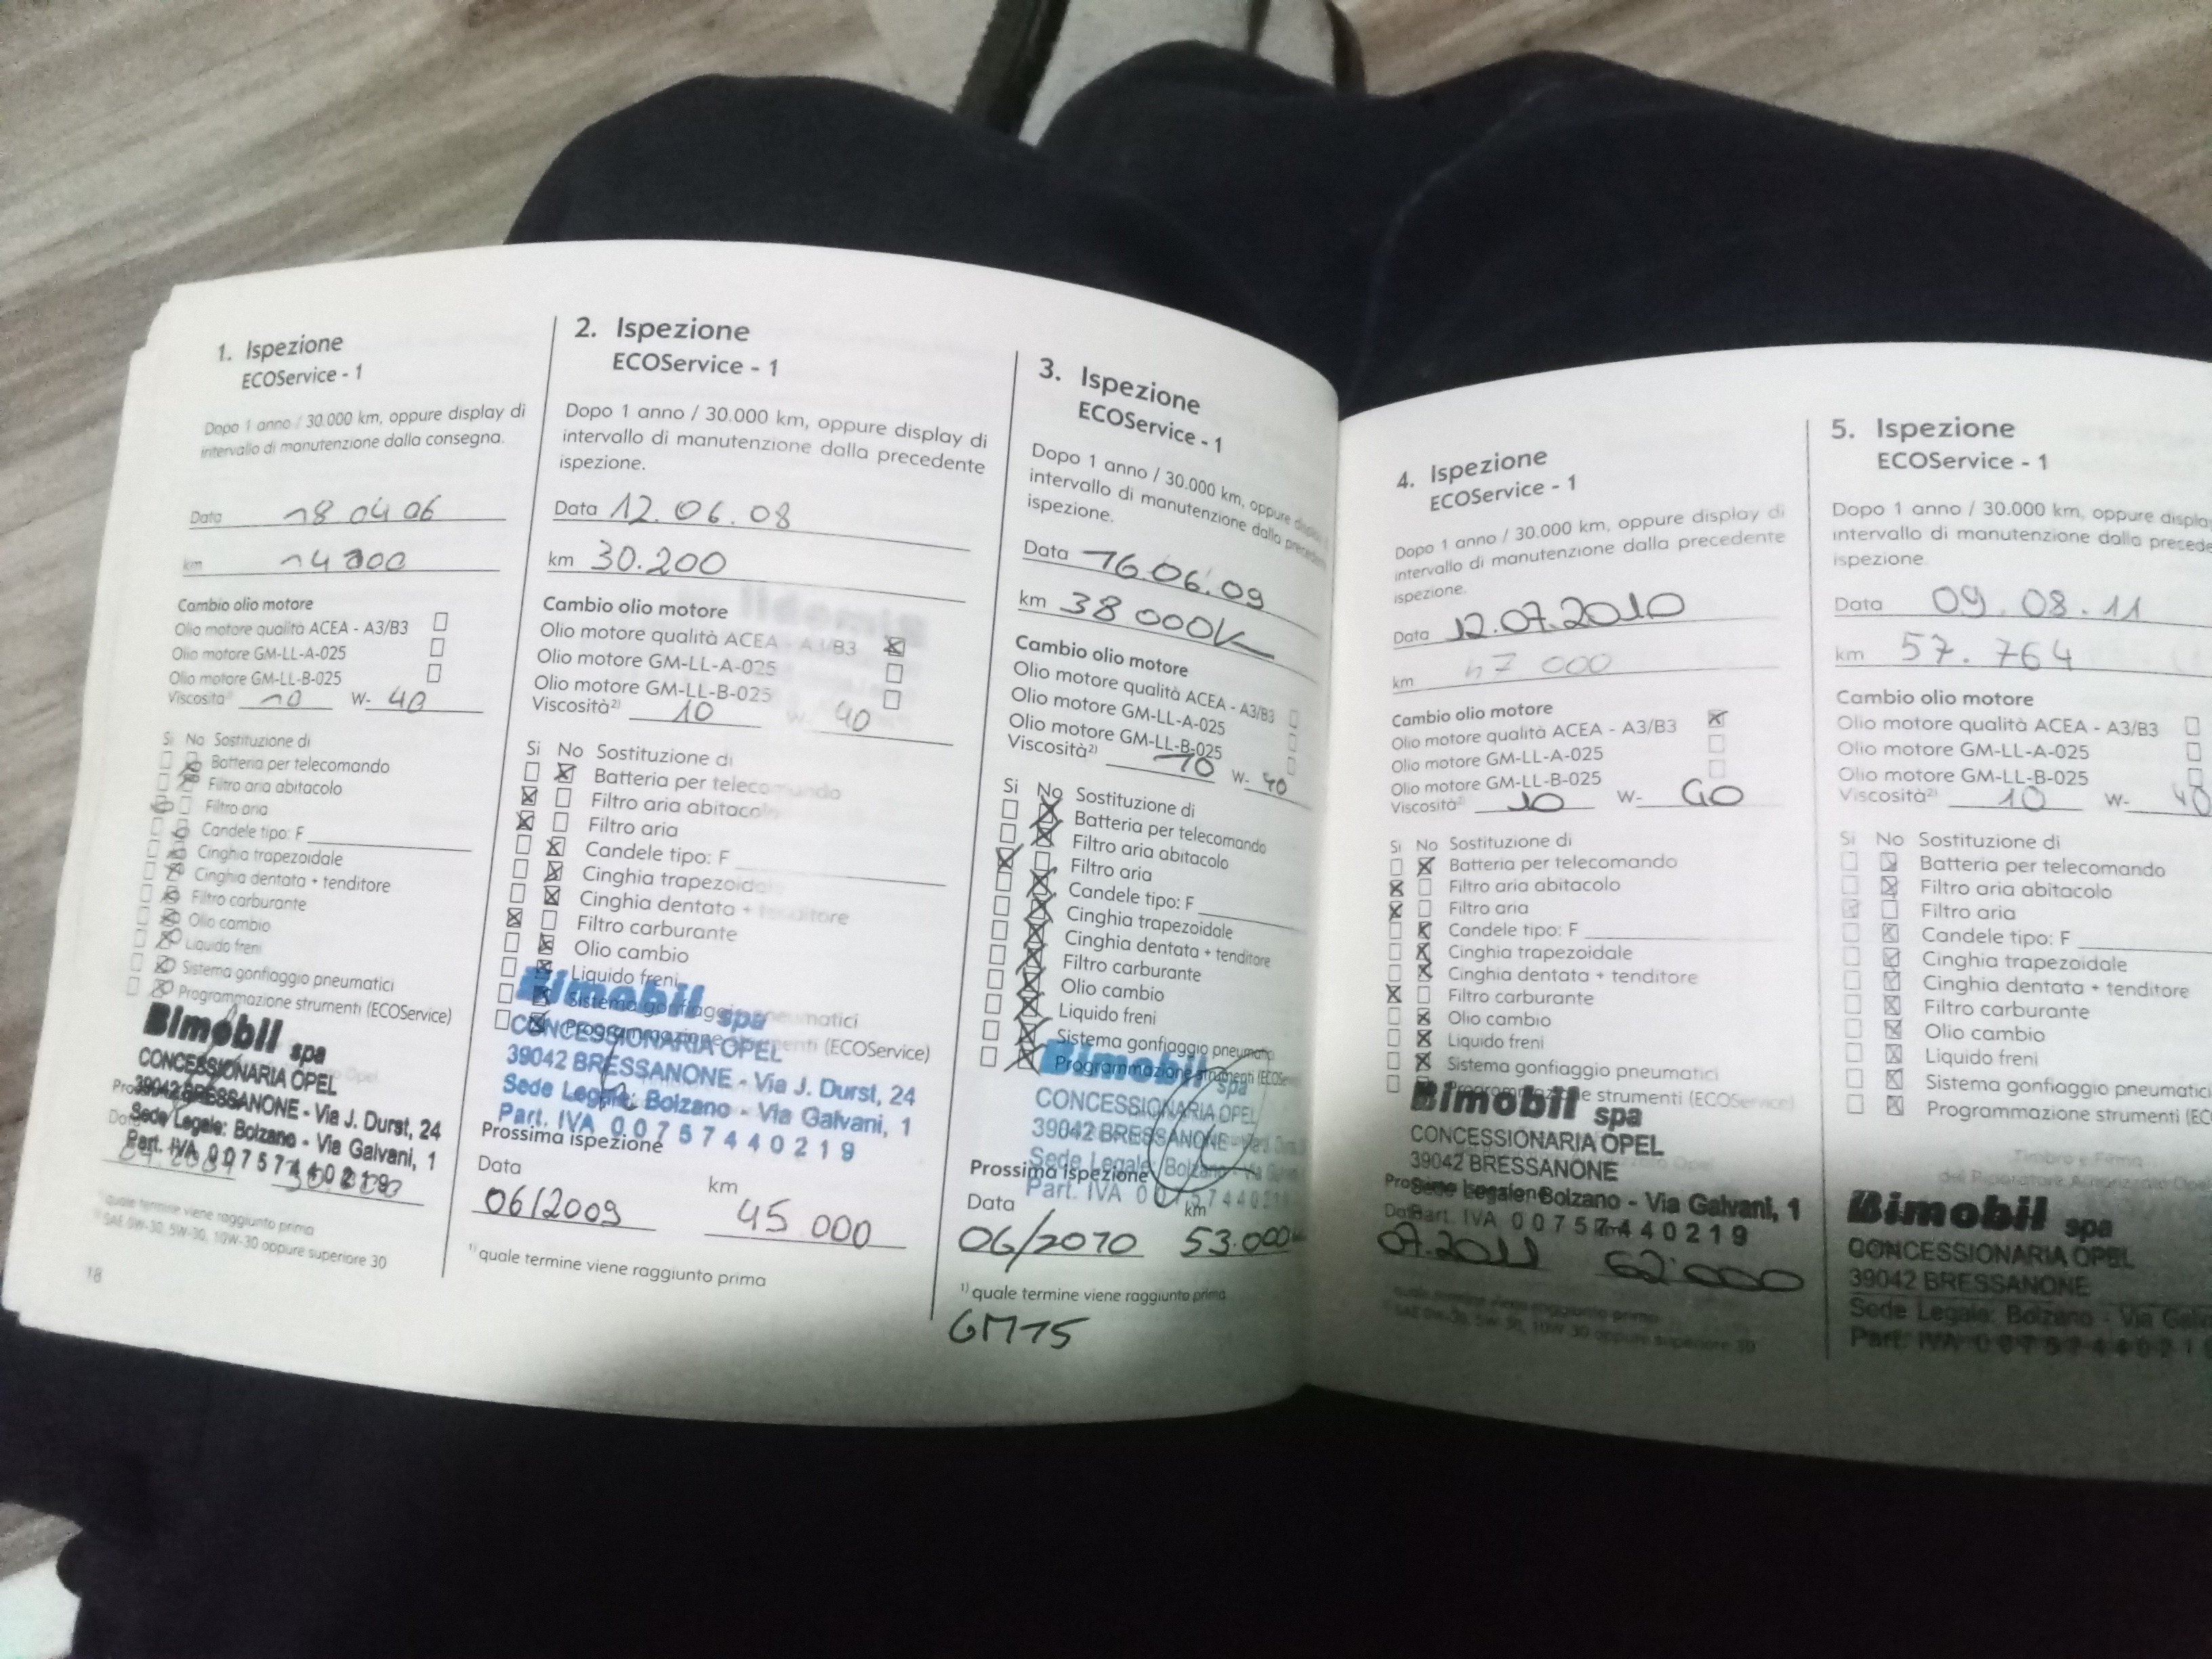 1. Ispezione
ECOService - 1
Dopo 1 anno / 30.000 km, oppure display di
intervallo di manutenzione dalla consegna.
Data 18 04 06
km
Cambio olio motore
Olio motore qualità ACEA - A3/B3
Olio motore GM-LL-A-025
Olio motore GM-LL-B-025
Viscosità 10 W- 40
Si No Sostituzione di
Batteria per telecomando
Filtro aria abitacolo
Filtro aria
Candele tipo: F
Cinghia trapezoidale
Cinghia dentata + tenditore
Filtro carburante
Olio cambio
Liquido freni
Sistema gonfiaggio pneumatici
Programmazione strumenti (ECOService)
Bimobil spa
CONCESSIONARIA OPEL
39042 BRESSANONE - Via J. Durst, 24
Sede Legale: Bolzano - Via Galvani, 1
Part. IVA 0 0 7 5 7 4 4 0 2 1 9
quale termine viene raggiunto prima
SAE 0W-30, 5W-30, 10W-30 oppure superiore 30
18
2. Ispezione
ECOService - 1
Dopo 1 anno / 30.000 km, oppure display di
intervallo di manutenzione dalla precedente
ispezione.
Data 12.06.08
km 30.200
Cambio olio motore
Olio motore qualità ACEA - A3/B3
Olio motore GM-LL-A-025
Olio motore GM-LL-B-025
Viscosità2) 10 W- 40
Si No Sostituzione di
Batteria per telecomando
Filtro aria abitacolo
Filtro aria
Candele tipo: F
Cinghia trapezoidale
Cinghia dentata + tenditore
Filtro carburante
Olio cambio
Liquido freni
Sistema gonfiaggio pneumatici
Programmazione strumenti (ECOService)
Bimobil spa
CONCESSIONARIA OPEL
39042 BRESSANONE - Via J. Durst, 24
Sede Legale: Bolzano - Via Galvani, 1
Part. IVA 0 0 7 5 7 4 4 0 2 1 9
Prossima ispezione
Data km
06/2009 45 000
1) quale termine viene raggiunto prima
3. Ispezione
ECOService - 1
Dopo 1 anno / 30.000 km, oppure
intervallo di manutenzione dalla
ispezione.
Data 16.06.09
km 38 000
Cambio olio motore
Olio motore qualità ACEA - A3/B3
Olio motore GM-LL-A-025
Olio motore GM-LL-B-025
Viscosità2) 10 W- 40
Si No Sostituzione di
Batteria per telecomando
Filtro aria abitacolo
Filtro aria
Candele tipo: F
Cinghia trapezoidale
Cinghia dentata + tenditore
Filtro carburante
Olio cambio
Liquido freni
Sistema gonfiaggio
Programmazione strumenti
Bimobil spa
CONCESSIONARIA OPEL
39042 BRESSANONE
Sede Legale: Bolzano
Part. IVA 0 0 7 5 7 4 4 0 2 1
Prossima ispezione
Data km
06/2010 53.000
1) quale termine viene raggiunto prima
GM15
4. Ispezione
ECOService - 1
Dopo 1 anno / 30.000 km, oppure display di
intervallo di manutenzione dalla precedente
ispezione.
Data 12.07.2010
km 47 000
Cambio olio motore
Olio motore qualità ACEA - A3/B3
Olio motore GM-LL-A-025
Olio motore GM-LL-B-025
Viscosità 10 W- 40
Si No Sostituzione di
Batteria per telecomando
Filtro aria abitacolo
Filtro aria
Candele tipo: F
Cinghia trapezoidale
Cinghia dentata + tenditore
Filtro carburante
Olio cambio
Liquido freni
Sistema gonfiaggio pneumatici
Programmazione strumenti (ECOService)
Bimobil spa
CONCESSIONARIA OPEL
39042 BRESSANONE
Sede Legale: Bolzano - Via Galvani, 1
Part. IVA 0 0 7 5 7 4 4 0 2 1 9
07.2011 62.000
5. Ispezione
ECOService - 1
Dopo 1 anno / 30.000 km, oppure
intervallo di manutenzione dalla
ispezione.
Data 09.08.11
km 57.764
Cambio olio motore
Olio motore qualità ACEA - A3/B3
Olio motore GM-LL-A-025
Olio motore GM-LL-B-025
Viscosità2) 10 W- 40
Si No Sostituzione di
Batteria per telecomando
Filtro aria abitacolo
Filtro aria
Candele tipo: F
Cinghia trapezoidale
Cinghia dentata + tenditore
Filtro carburante
Olio cambio
Liquido freni
Sistema gonfiaggio pneumatici
Programmazione strumenti
Timbro e Firma
del Riparatore Autorizzato Opel
Bimobil spa
CONCESSIONARIA OPEL
39042 BRESSANONE
Sede Legale: Bolzano - Via
Part. IVA 0 0 7 5 7 4 4 0 2 1